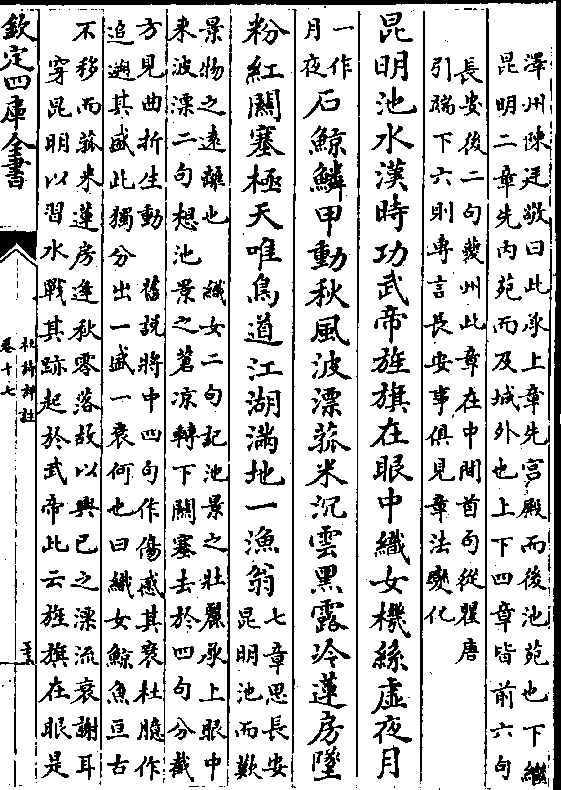 澤州陳廷敬曰此承上章先宮殿而後池苑也下繼
昆明二章先內苑而及城外也上下四章皆前六句
長安後二句夔州此章在中間首句從瞿唐
引端下六則專言長安事俱見章法變化
昆明池水漢時功武帝旌旗在眼中織女機絲虛夜月
一作
月夜
石鯨鱗甲動秋風波漂菰米沉雲黑露冷蓮房墜
粉紅關塞極天唯鳥道江湖滿地一漁翁
七章思長安
昆明池而歎
景物之遠離也 織女二句記池景之壯麗承上眼中
來波漂二句想池景之蒼凉轉下關塞去於四句分截
方見曲折生動 舊説將中四句作傷感其衰杜臆作
追遡其盛此獨分出一盛一衰何也曰織女鯨魚亘古
不移而菰米蓮房逢秋零落故以興己之漂流衰謝耳
穿昆明以習水戰其跡起於武帝此云旌旗在眼是
欽定四庫全書
杜詩詳註
卷十七